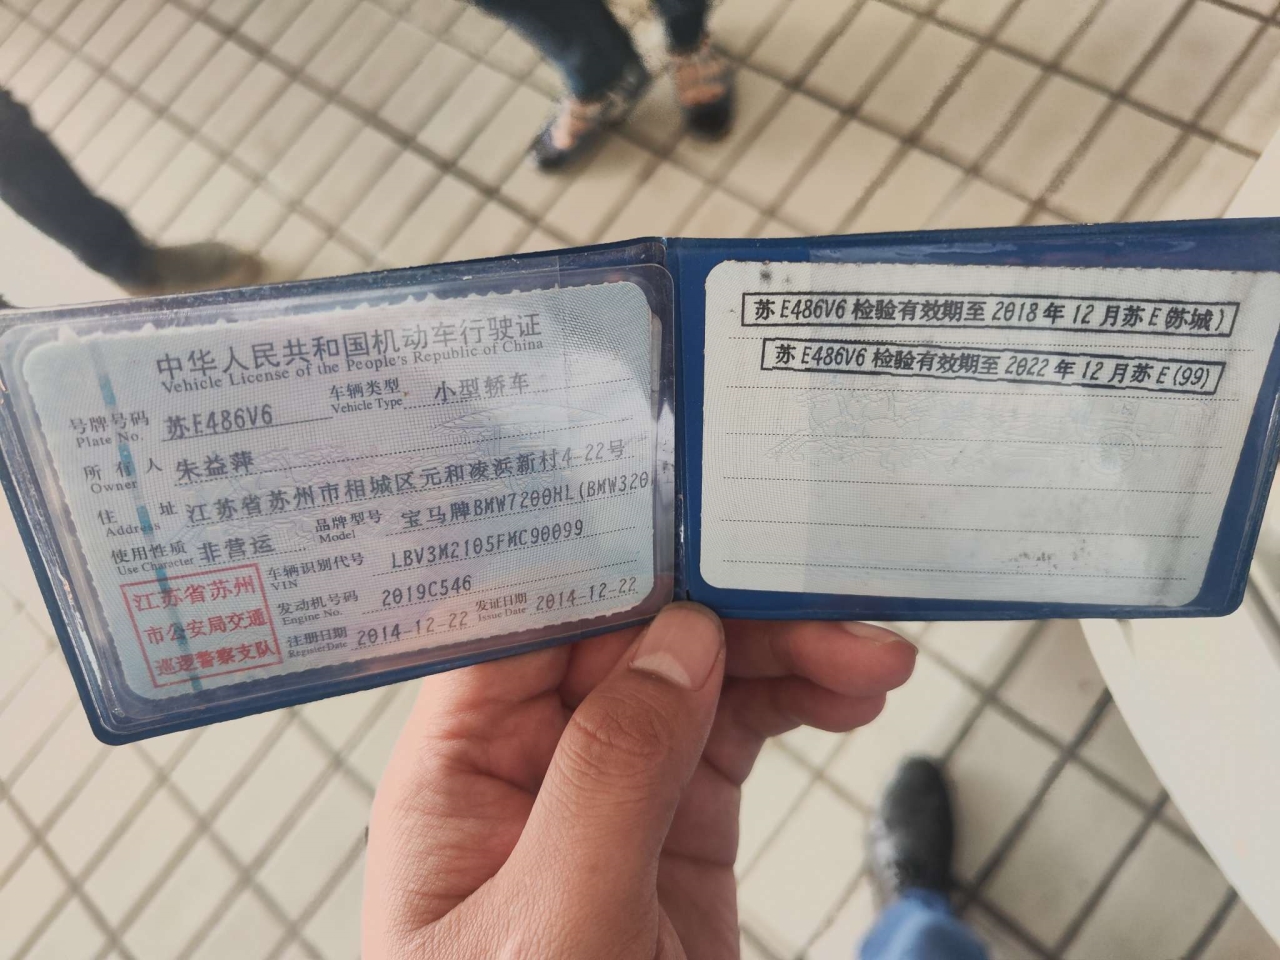 中华人民共和国机动车行驶证
Vehicle License of the People's Republic of China
号牌号码 苏E486V6 车辆类型 小型轿车
Plate No. Vehicle Type
所有人 朱益萍
Owner
住址 江苏省苏州市相城区元和凌浜新村4-22号
Address
使用性质 非营运 品牌型号 宝马牌BMW7200HL(BMW320
Use Character Model
车辆识别代号 LBV3M2105FMC90099
VIN
发动机号码 2019C546
Engine No.
注册日期 2014-12-22 发证日期 2014-12-22
Register Date Issue Date
江苏省苏州
市公安局交通
巡逻警察支队
苏E486V6 检验有效期至 2018 年 12 月苏 E(苏城)
苏 E486V6 检验有效期至 2022 年 12 月苏 E(99)